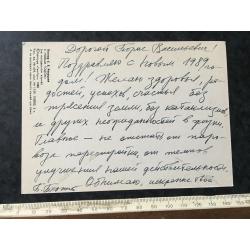 Дорогой Борис Васильевич!
Поздравляю с Новым 1989 го-
дом! Желаю здоровья, ра-
достей, успехов, счастья без
трясения земли, без катаклизмов
и других неожиданностей в жизни.
Главное — не отстать от паро-
воза перестройки, от темпов
улучшения нашей действительности.
Обнимаю, искренне твой